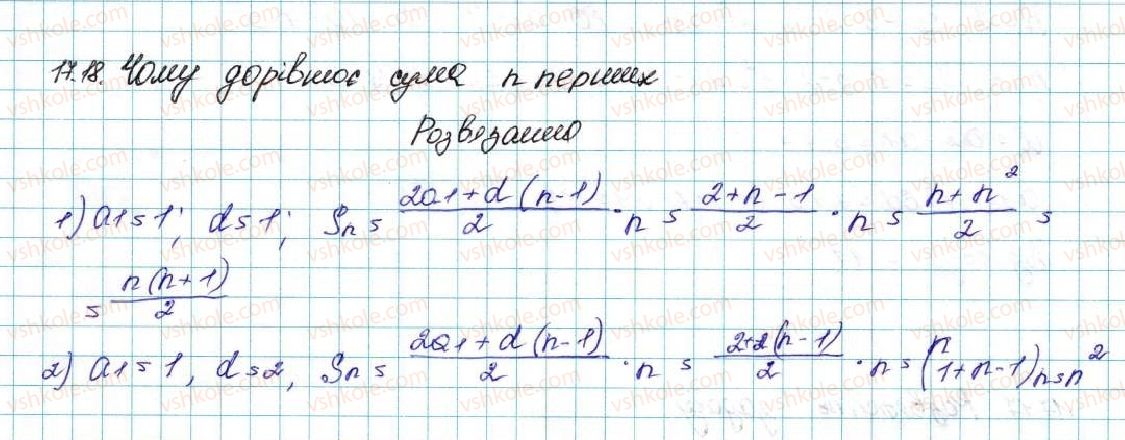 17.18. Чому дорівнює сума n перших
Розвязання
1) a1 = 1; d = 1; Sn = (2a1 + d(n-1))/2 · n = (2 + n - 1)/2 · n = (n + n²)/2 =
= n(n+1)/2
2) a1 = 1, d = 2, Sn = (2a1 + d(n-1))/2 · n = (2+2(n-1))/2 · n = (1+n-1)n = n²